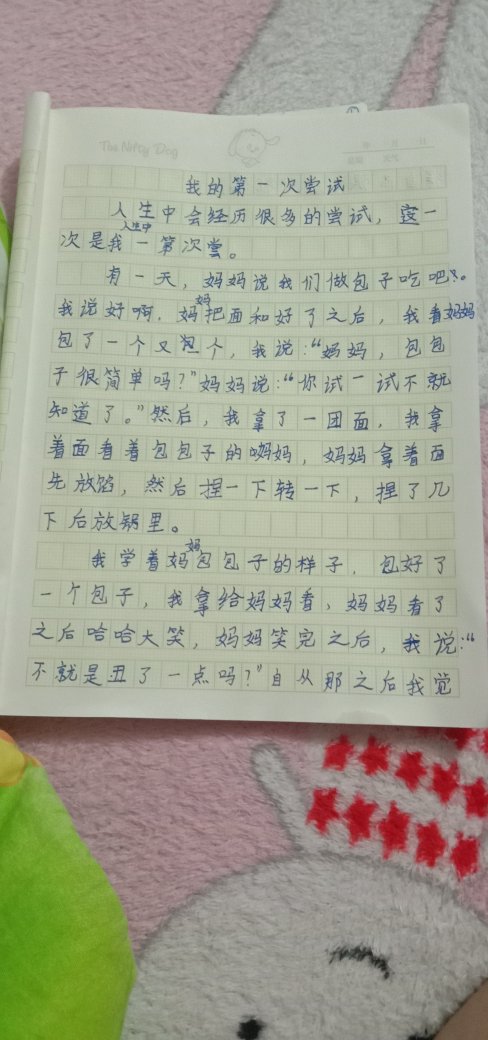 The Nifty Dog
年 月 日
天气
我的第一次尝试
人生中会经历很多的尝试，这一
次是我人生中一第次尝。
有一天，妈妈说我们做包子吃吧。
我说好啊，妈妈把面和好了之后，我看妈妈
包了一个又包个，我说：“妈妈，包包
子很简单吗？”妈妈说：“你试一试不就
知道了。”然后，我拿了一团面，我拿
着面看着包包子的妈妈，妈妈拿着面
先放馅，然后捏一下转一下，捏了几
下后放锅里。
我学着妈妈包包子的样子，包好了
一个包子，我拿给妈妈看，妈妈看了
之后哈哈大笑，妈妈笑完之后，我说：“
不就是丑了一点吗？”自从那之后我觉